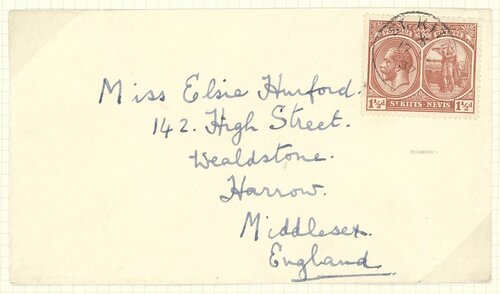 Miss Elsie Hurford.
142. High Street.
Wealdstone.
Harrow.
Middlesex.
England
POSTAGE
1½d ST KITTS-NEVIS 1½d